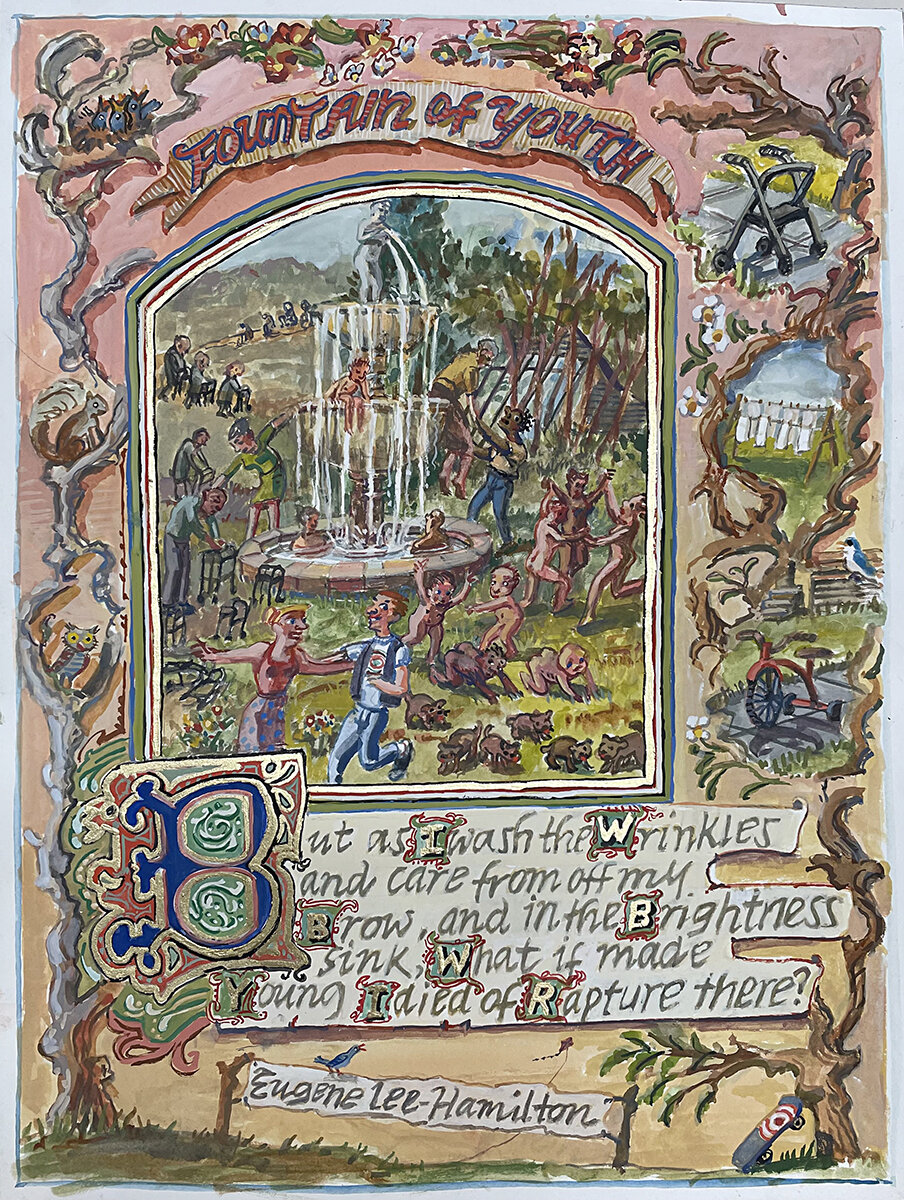 Fountain of Youth
But as I wash the Wrinkles
and care from off my
Brow, and in the Brightness
sink, What if made
Young I died of Rapture there?
Eugene Lee-Hamilton